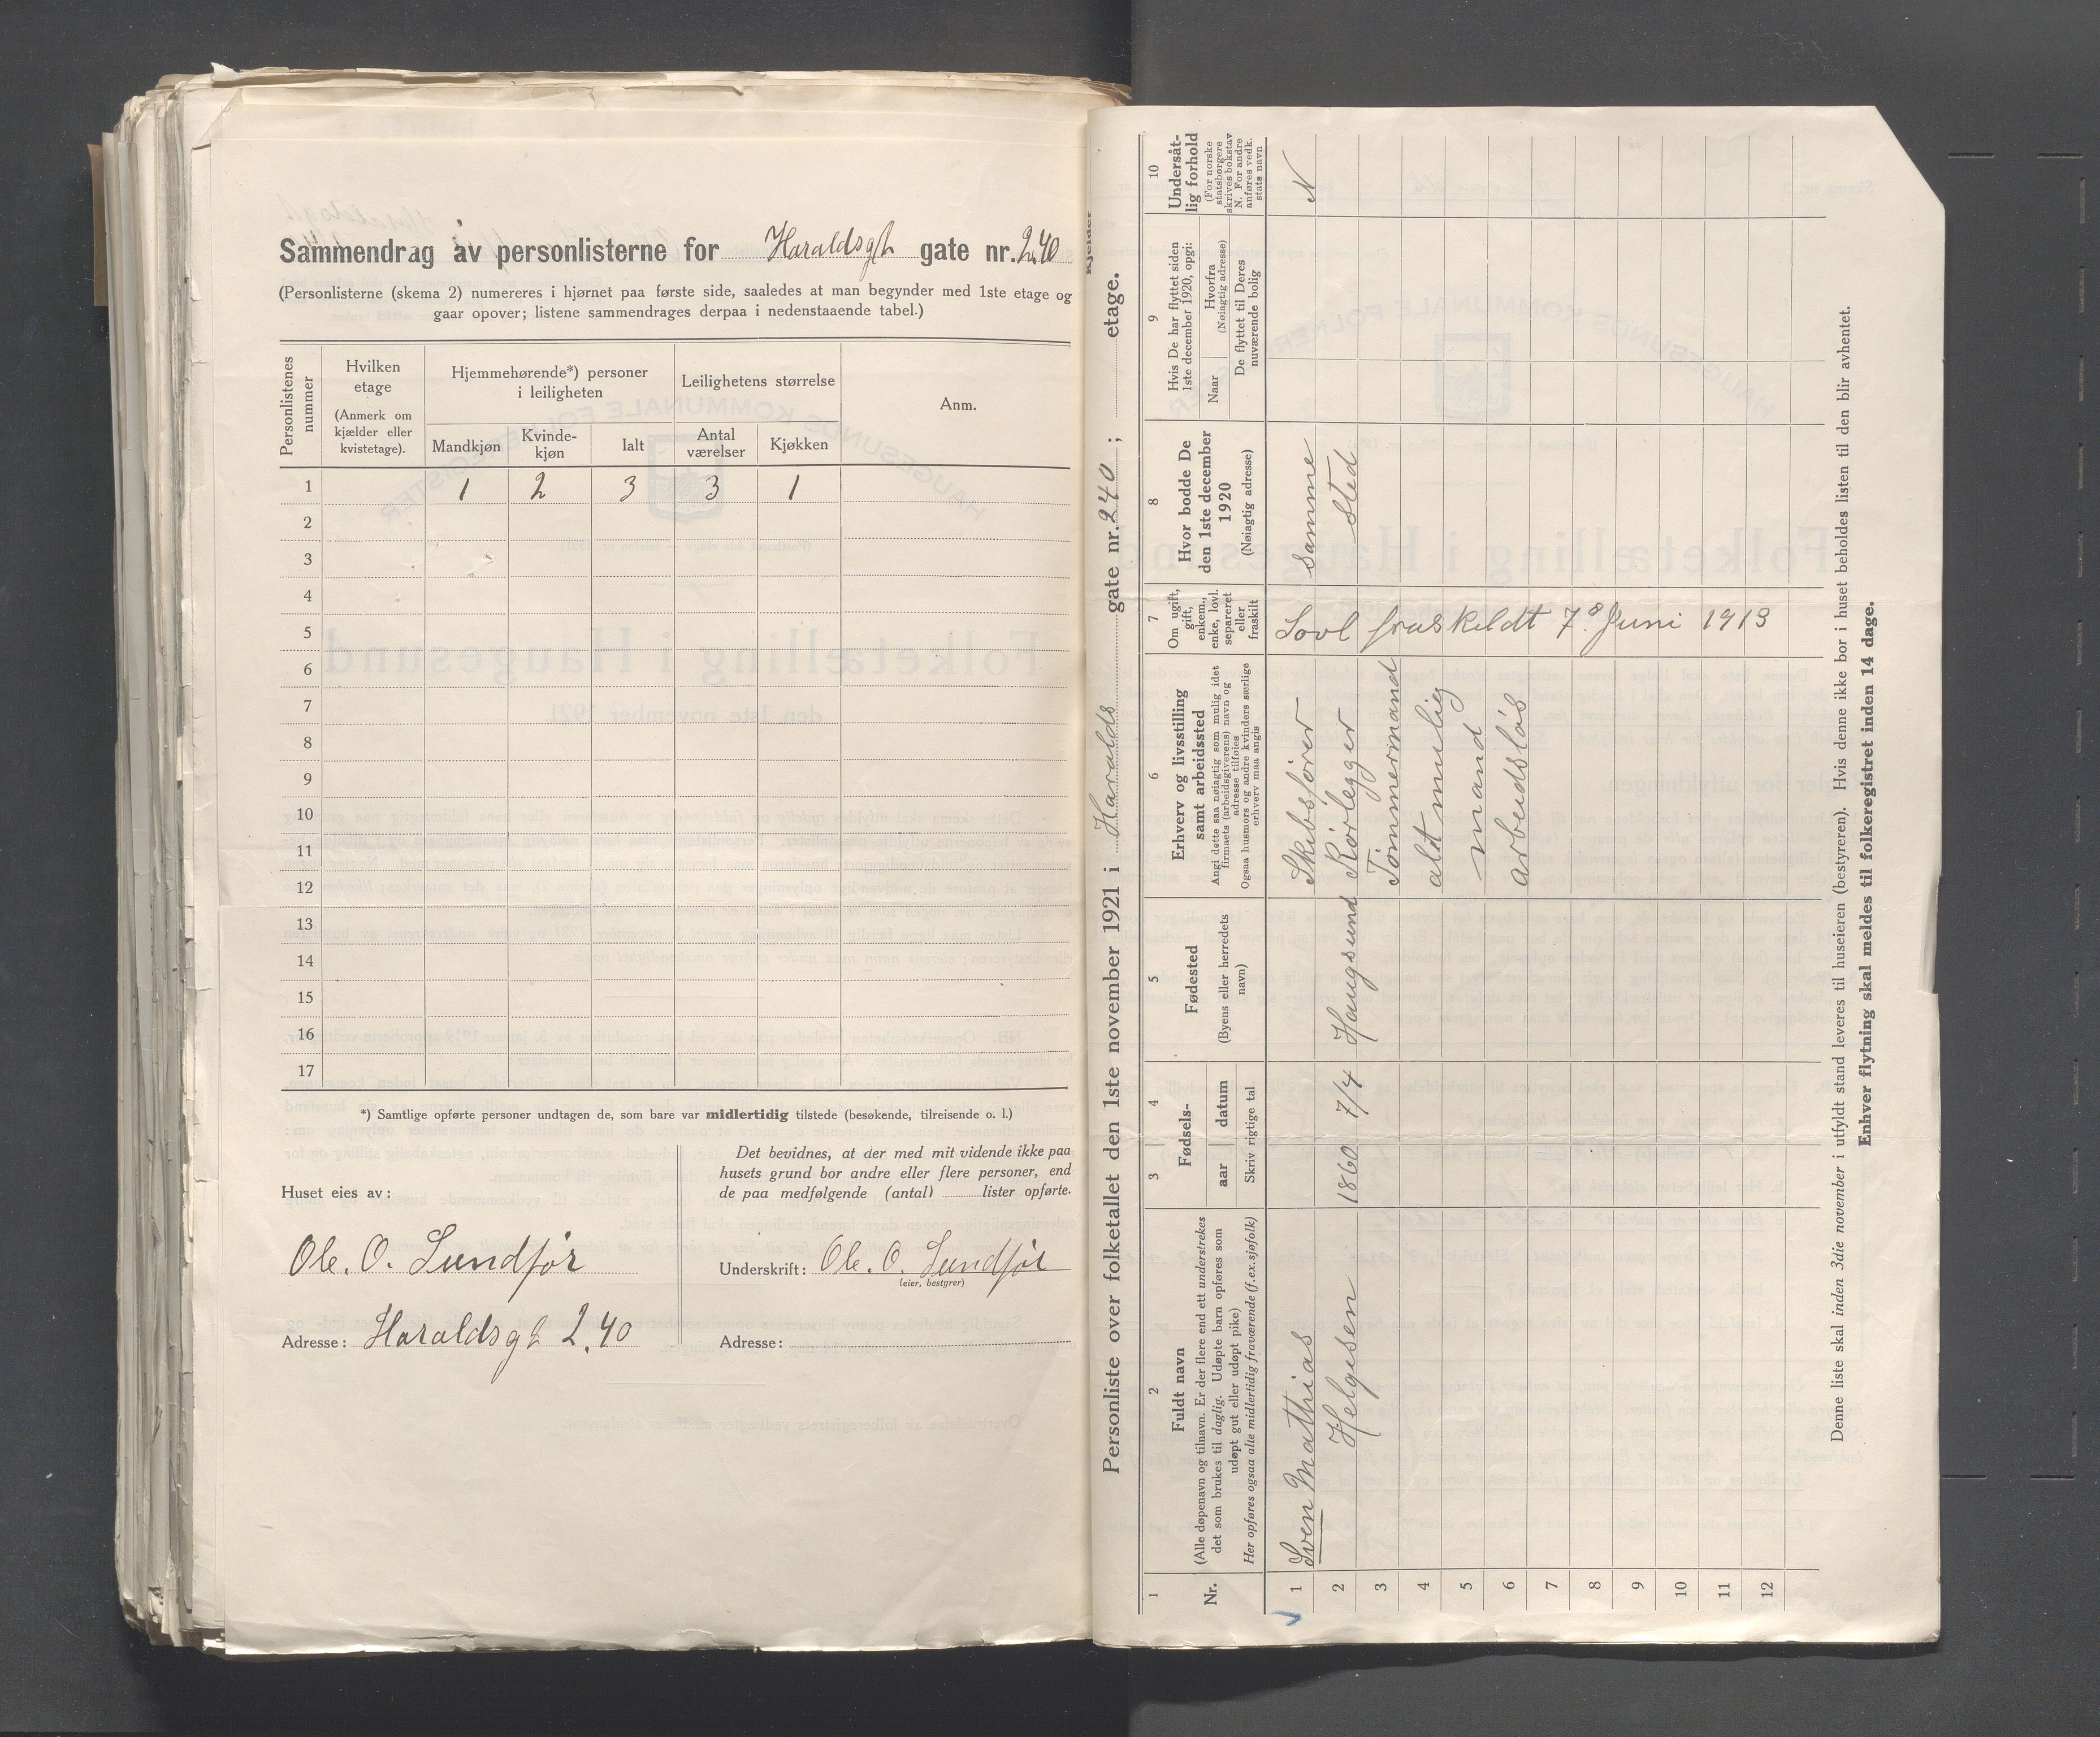 Sammendrag av personlisterne for Haraldsgt gate nr. 240
(Personlisterne (skema 2) numereres i hjørnet paa første side, saaledes at man begynder med 1ste etage og
gaar opover; listene sammendrages derpaa i nedenstaaende tabel.)
Personlistenes nummer
Hvilken etage
(Anmerk om kjælder eller kvistetage).
Hjemmehørende*) personer i leiligheten
Leilighetens størrelse
Anm.
Mandkjøn
Kvinde-kjøn
Ialt
Antal værelser
Kjøkken
1 1 2 3 3 1
2
3
4
5
6
7
8
9
10
11
12
13
14
15
16
17
*) Samtlige opførte personer undtagen de, som bare var midlertidig tilstede (besøkende, tilreisende o. l.)
Huset eies av:
Ole. O. Lundfør
Adresse: Haraldsgt 2.40
Det bevidnes, at der med mit vidende ikke paa
husets grund bor andre eller flere personer, end
de paa medfølgende (antal) lister opførte.
Underskrift: Ole. O. Lundfør
(eier, bestyrer)
Adresse:
Kjelder
Personliste over folketallet den 1ste november 1921 i Haralds gate nr. 240; etage.
1
Nr.
2
Fuldt navn
(Alle døpenavn og tilnavn. Er der flere end ett understrekes
det som brukes til daglig. Udøpte barn opføres som
udøpt gut eller udøpt pike)
Her opføres ogsaa alle midlertidig fraværende (f.ex. sjøfolk)
3
4
Fødsels-
aar
datum
Skriv rigtige tal
5
Fødested
(Byens eller herredets
navn)
6
Erhverv og livsstilling
samt arbeidssted
Angi dette saa nøiagtig som mulig idet
firmaets (arbeidsgiverens) navn og
adresse tilføies
Ogsaa husmors og andre kvinders særlige
erhverv maa angis
7
Om ugift,
gift,
enkem.,
enke, lovl.
separeret
eller
fraskilt
8
Hvor bodde De
den 1ste december
1920
(Nøiagtig adresse)
9
Hvis De har flyttet siden
1ste december 1920, opgi:
Naar
Hvorfra
(Nøiagtig adresse)
De flyttet til Deres
nuværende bolig
10
Undersåt-
lig forhold
(For norske
statsborgere
skrives bokstav
N. For andre
anføres vedk.
stats navn
1 Sven Mathias Skibsfører Lovl fraskeldt 7de Juni 1913 samme N
2 Helgesen 1860 7/4 Haugsund Rörlegger sted
3 Tømmermand
4 alt mulig
5 mand
6 arbeidsløs
7
8
9
10
11
12
Denne liste skal inden 3die november i utfyldt stand leveres til huseieren (bestyreren). Hvis denne ikke bor i huset beholdes listen til den blir avhentet.
Enhver flytning skal meldes til folkeregistret inden 14 dage.